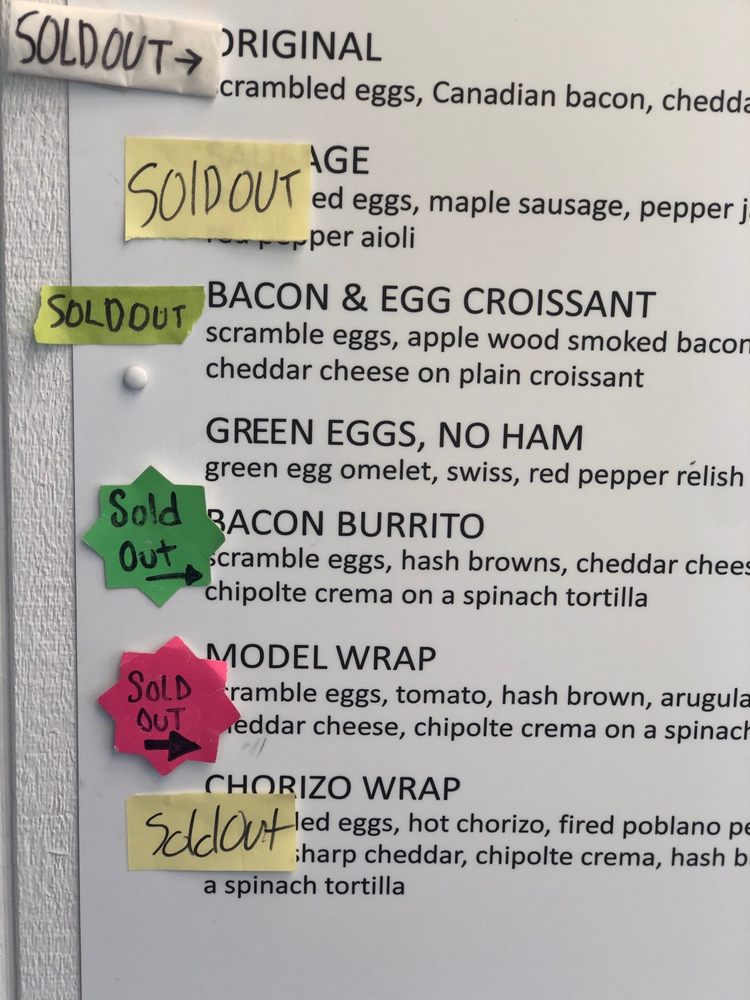 SOLD OUT → ORIGINAL
scrambled eggs, Canadian bacon, chedda
SOLD OUT AGE
ed eggs, maple sausage, pepper j
red pepper aioli
SOLD OUT BACON & EGG CROISSANT
scramble eggs, apple wood smoked bacon
cheddar cheese on plain croissant
GREEN EGGS, NO HAM
green egg omelet, swiss, red pepper relish
Sold
Out →
BACON BURRITO
scramble eggs, hash browns, cheddar chees
chipolte crema on a spinach tortilla
SOLD
OUT →
MODEL WRAP
scramble eggs, tomato, hash brown, arugula
cheddar cheese, chipolte crema on a spinach
CHORIZO WRAP
Sold Out led eggs, hot chorizo, fired poblano pe
sharp cheddar, chipolte crema, hash b
a spinach tortilla